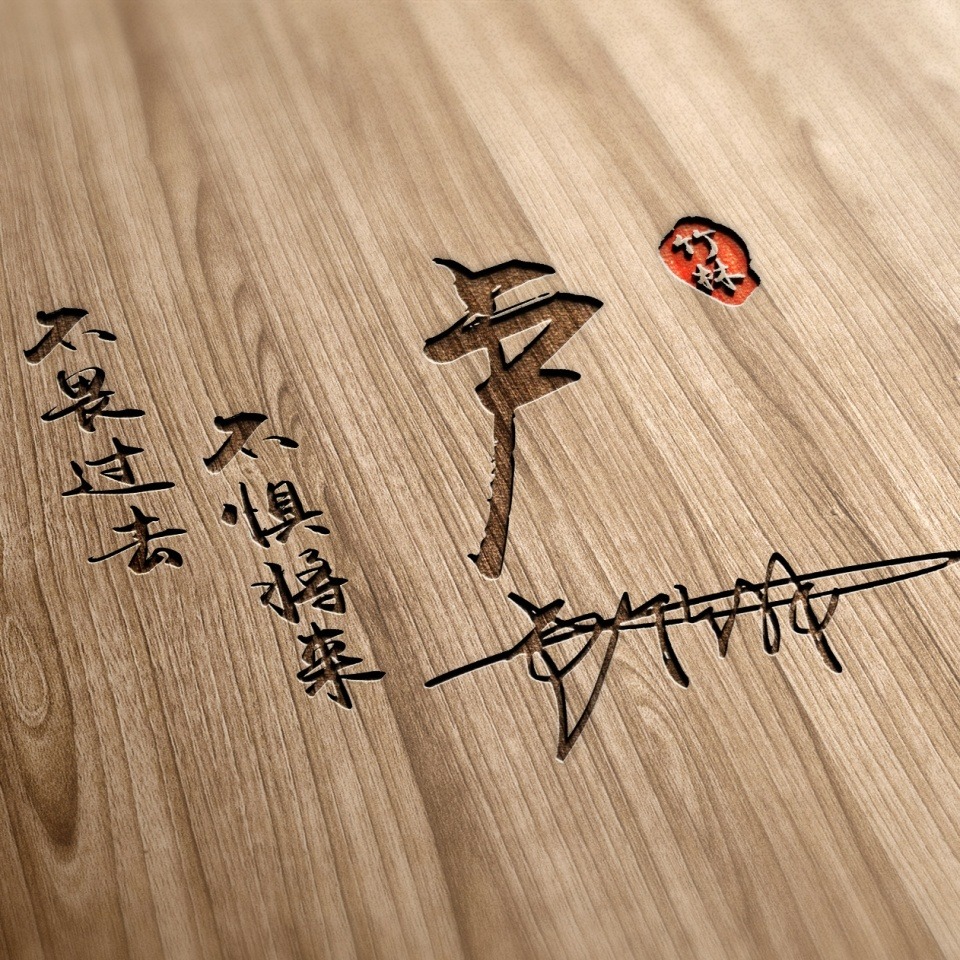 不畏过去
不惧将来
卢
竹林